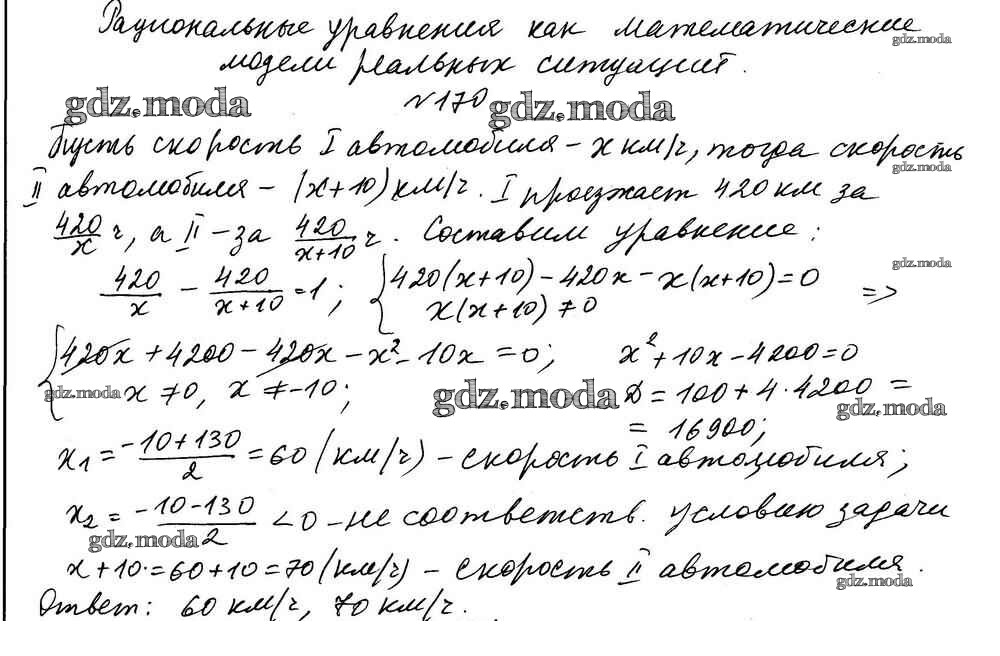 Рациональные уравнения как математические
gdz.moda
модели реальных ситуаций.
gdz.moda
№170
gdz.moda
Пусть скорость I автомобиля – x км/ч, тогда скорость
gdz.moda
II автомобиля – (x+10) км/ч. I проезжает 420 км за
420/x ч, а II – за 420/(x+10) ч. Составим уравнение:
gdz.moda
420/x – 420/(x+10) = 1; { 420(x+10) – 420x – x(x+10) = 0
x(x+10) ≠ 0 =>
{ 420x + 4200 – 420x – x² – 10x = 0; x² + 10x – 4200 = 0
gdz.moda x ≠ 0, x ≠ –10; gdz.moda D = 100 + 4·4200 =
gdz.moda
= 16900;
x₁ = (–10+130)/2 = 60 (км/ч) – скорость I автомобиля;
x₂ = (–10–130)/2 < 0 – не соответств. условию задачи
gdz.moda
x + 10 = 60 + 10 = 70 (км/ч) – скорость II автомобиля.
gdz.moda
Ответ: 60 км/ч, 70 км/ч.